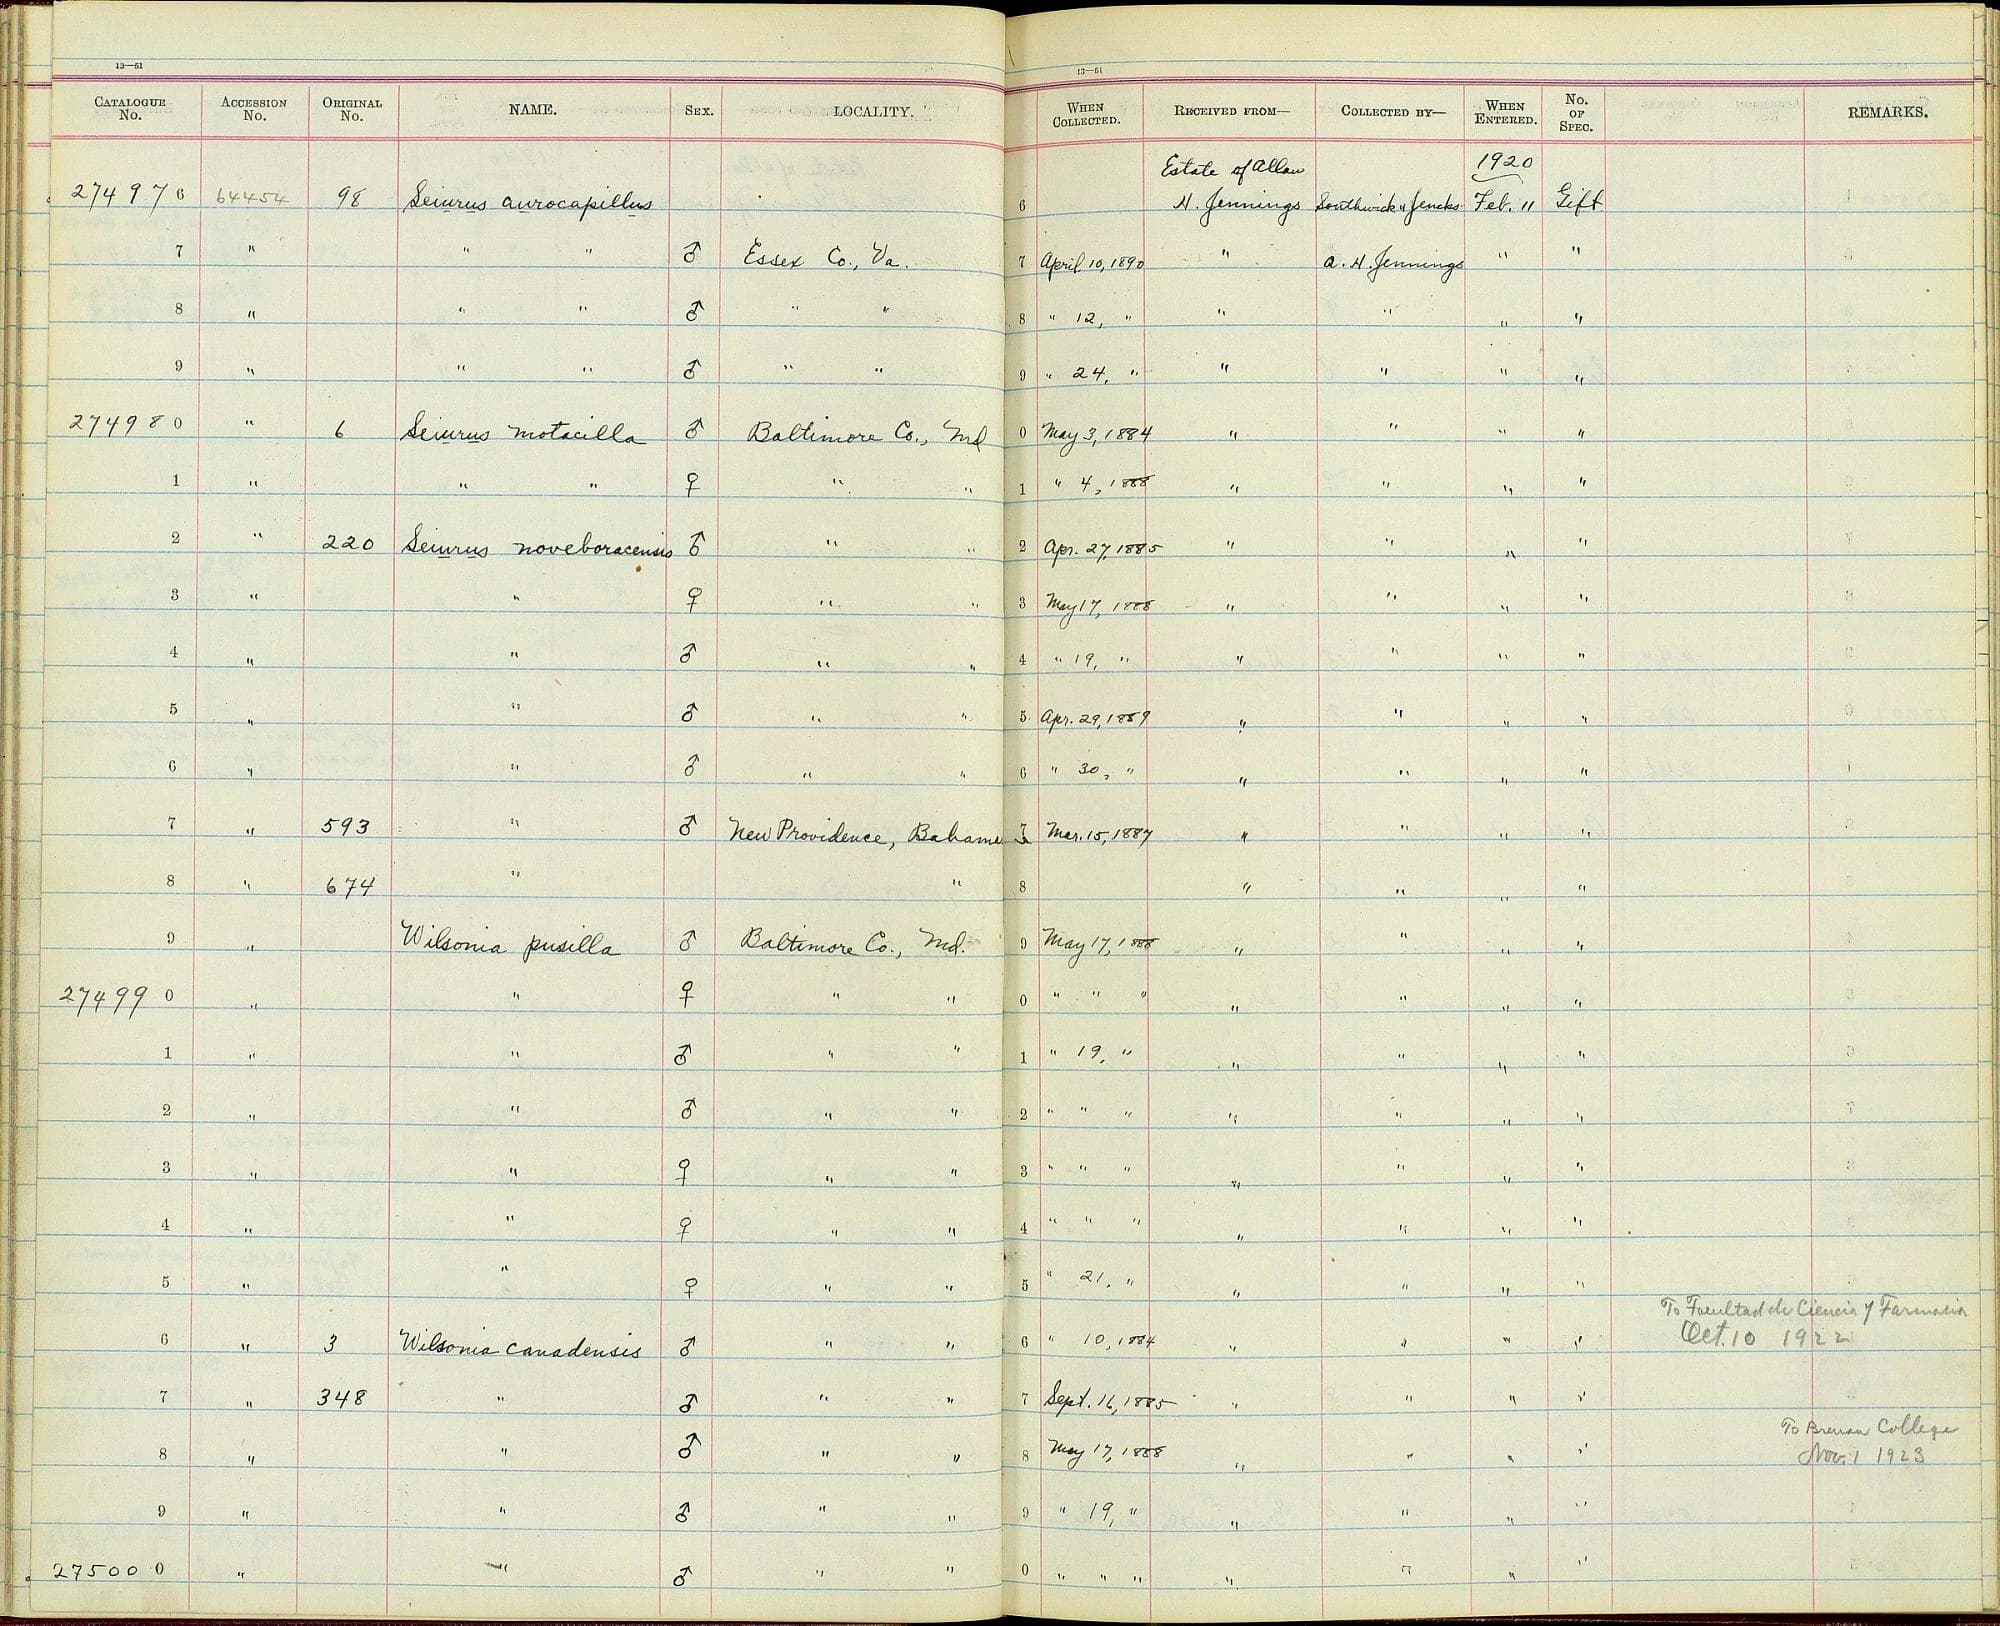 13—51
13—51
CATALOGUE No. ACCESSION No. ORIGINAL No. NAME. SEX. LOCALITY. WHEN COLLECTED. RECEIVED FROM— COLLECTED BY— WHEN ENTERED. No. OF SPEC. REMARKS.
Estate of Allan 1920
274976 64454 98 Seiurus aurocapillus 6 H. Jennings Southwick & Jencks Feb. 11 Gift
7 " " " ♂ Essex Co., Va. 7 April 10, 1890 " A. H. Jennings " "
8 " " " ♂ " " 8 " 12, " " " " "
9 " " " ♂ " " 9 " 24, " " " " "
274980 " 6 Seiurus motacilla ♂ Baltimore Co., Md 0 May 3, 1884 " " " "
1 " " " ♀ " " 1 " 4, 1888 " " " "
2 " 220 Seiurus noveboracensis ♂ " " 2 Apr. 27, 1885 " " " "
3 " " ♀ " " 3 May 17, 1888 " " " "
4 " " ♂ " " 4 " 19, " " " " "
5 " " ♂ " " 5 Apr. 29, 1889 " " " "
6 " " ♂ " " 6 " 30, " " " " "
7 " 593 " ♂ New Providence, Bahamas 7 Mar. 15, 1887 " " " "
8 " 674 " " 8 " " " "
9 " Wilsonia pusilla ♂ Baltimore Co., Md. 9 May 17, 1888 " " " "
274990 " " ♀ " " 0 " " " " " " "
1 " " ♂ " " 1 " 19, " " " " "
2 " " ♂ " " 2 " " " " " " "
3 " " ♀ " " 3 " " " " " " "
4 " " ♀ " " 4 " " " " " " "
5 " " ♀ " " 5 " 21, " " " " "
To Facultad de Ciencia y Farmacia
6 " 3 Wilsonia canadensis ♂ " " 6 " 10, 1884 " " " " Oct. 10 1922
7 " 348 " ♂ " " 7 Sept. 16, 1885 " " " "
To Brenau College
8 " " ♂ " " 8 May 17, 1888 " " " " Nov. 1 1923
9 " " ♂ " " 9 " 19, " " " " "
275000 " " ♂ " " 0 " " " " " " "